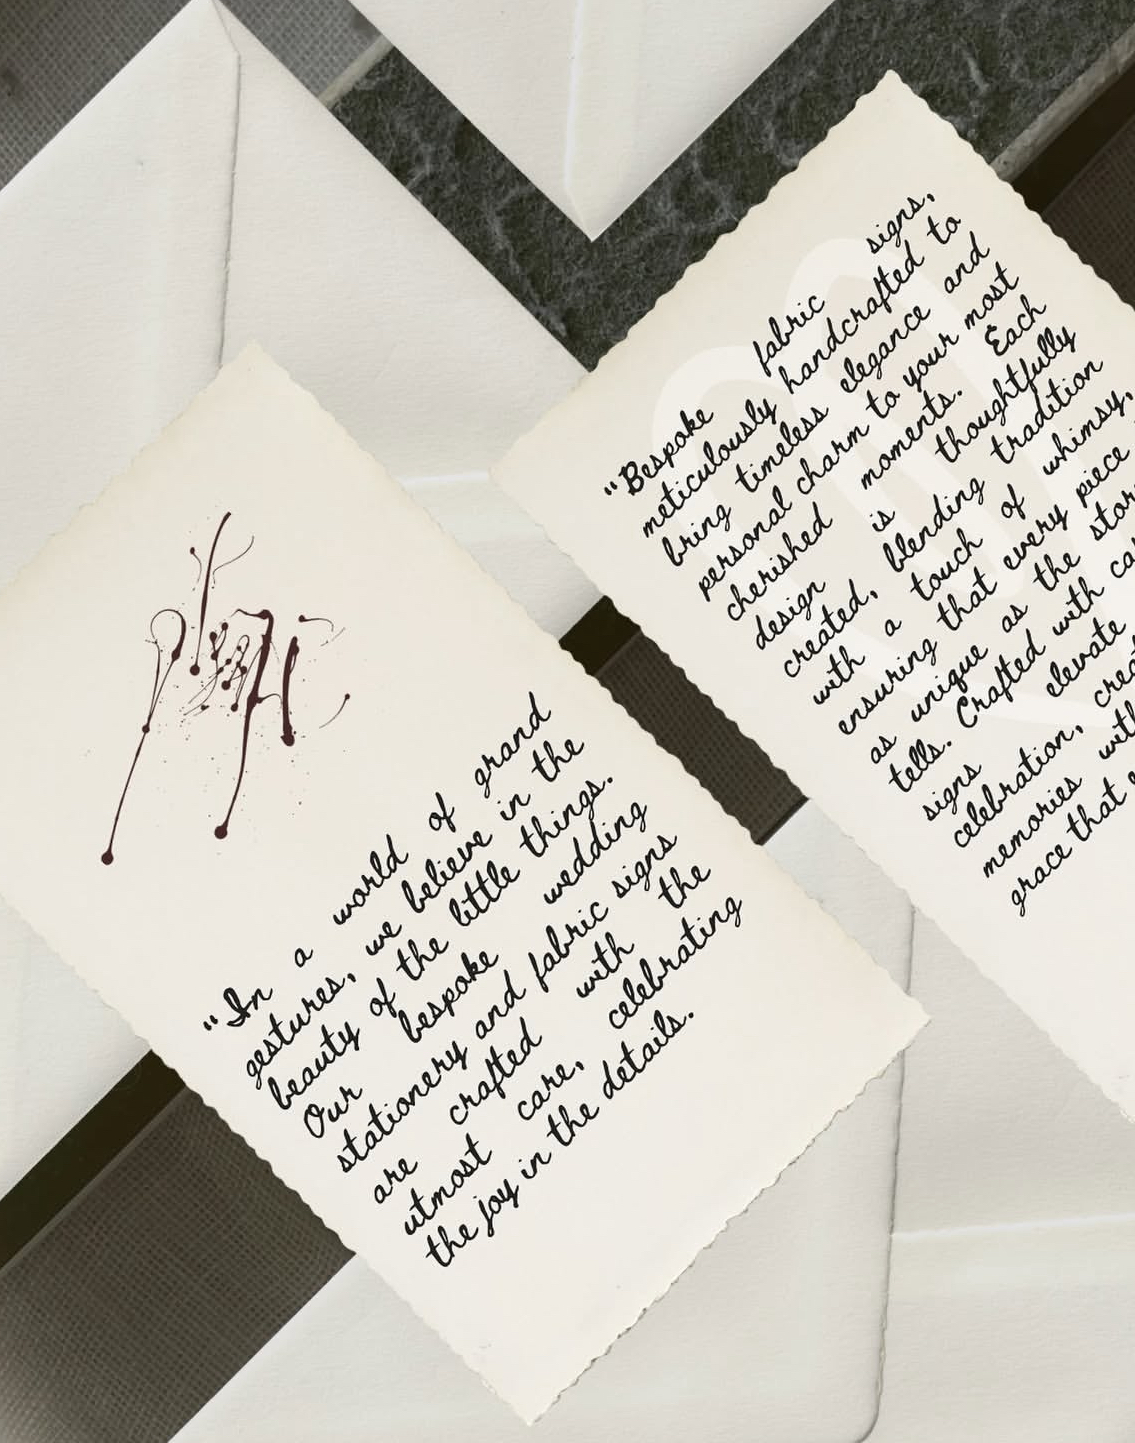 "In a world of grand
gestures, we believe in the
beauty of the little things.
Our bespoke wedding
stationery and fabric signs
are crafted with the
utmost care, celebrating
the joy in the details.
"Bespoke fabric signs,
meticulously handcrafted to
bring timeless elegance and
personal charm to your most
cherished moments. Each
design is thoughtfully
created, blending tradition
with a touch of whimsy,
ensuring that every piece
as unique as the
tells. Crafted with
signs elevate
celebration,
memories
grace that